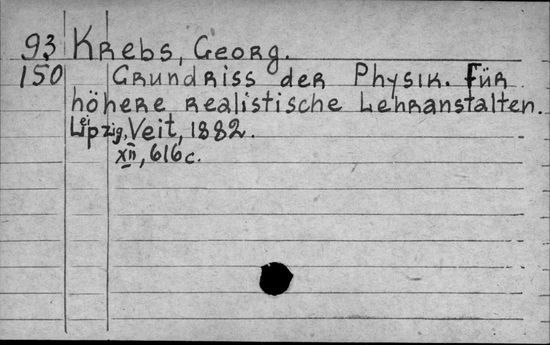 93 Krebs, Georg.
150 Grundriss der Physik. Für
höhere realistische Lehranstalten.
Leipzig, Veit, 1882.
XII, 616 c.